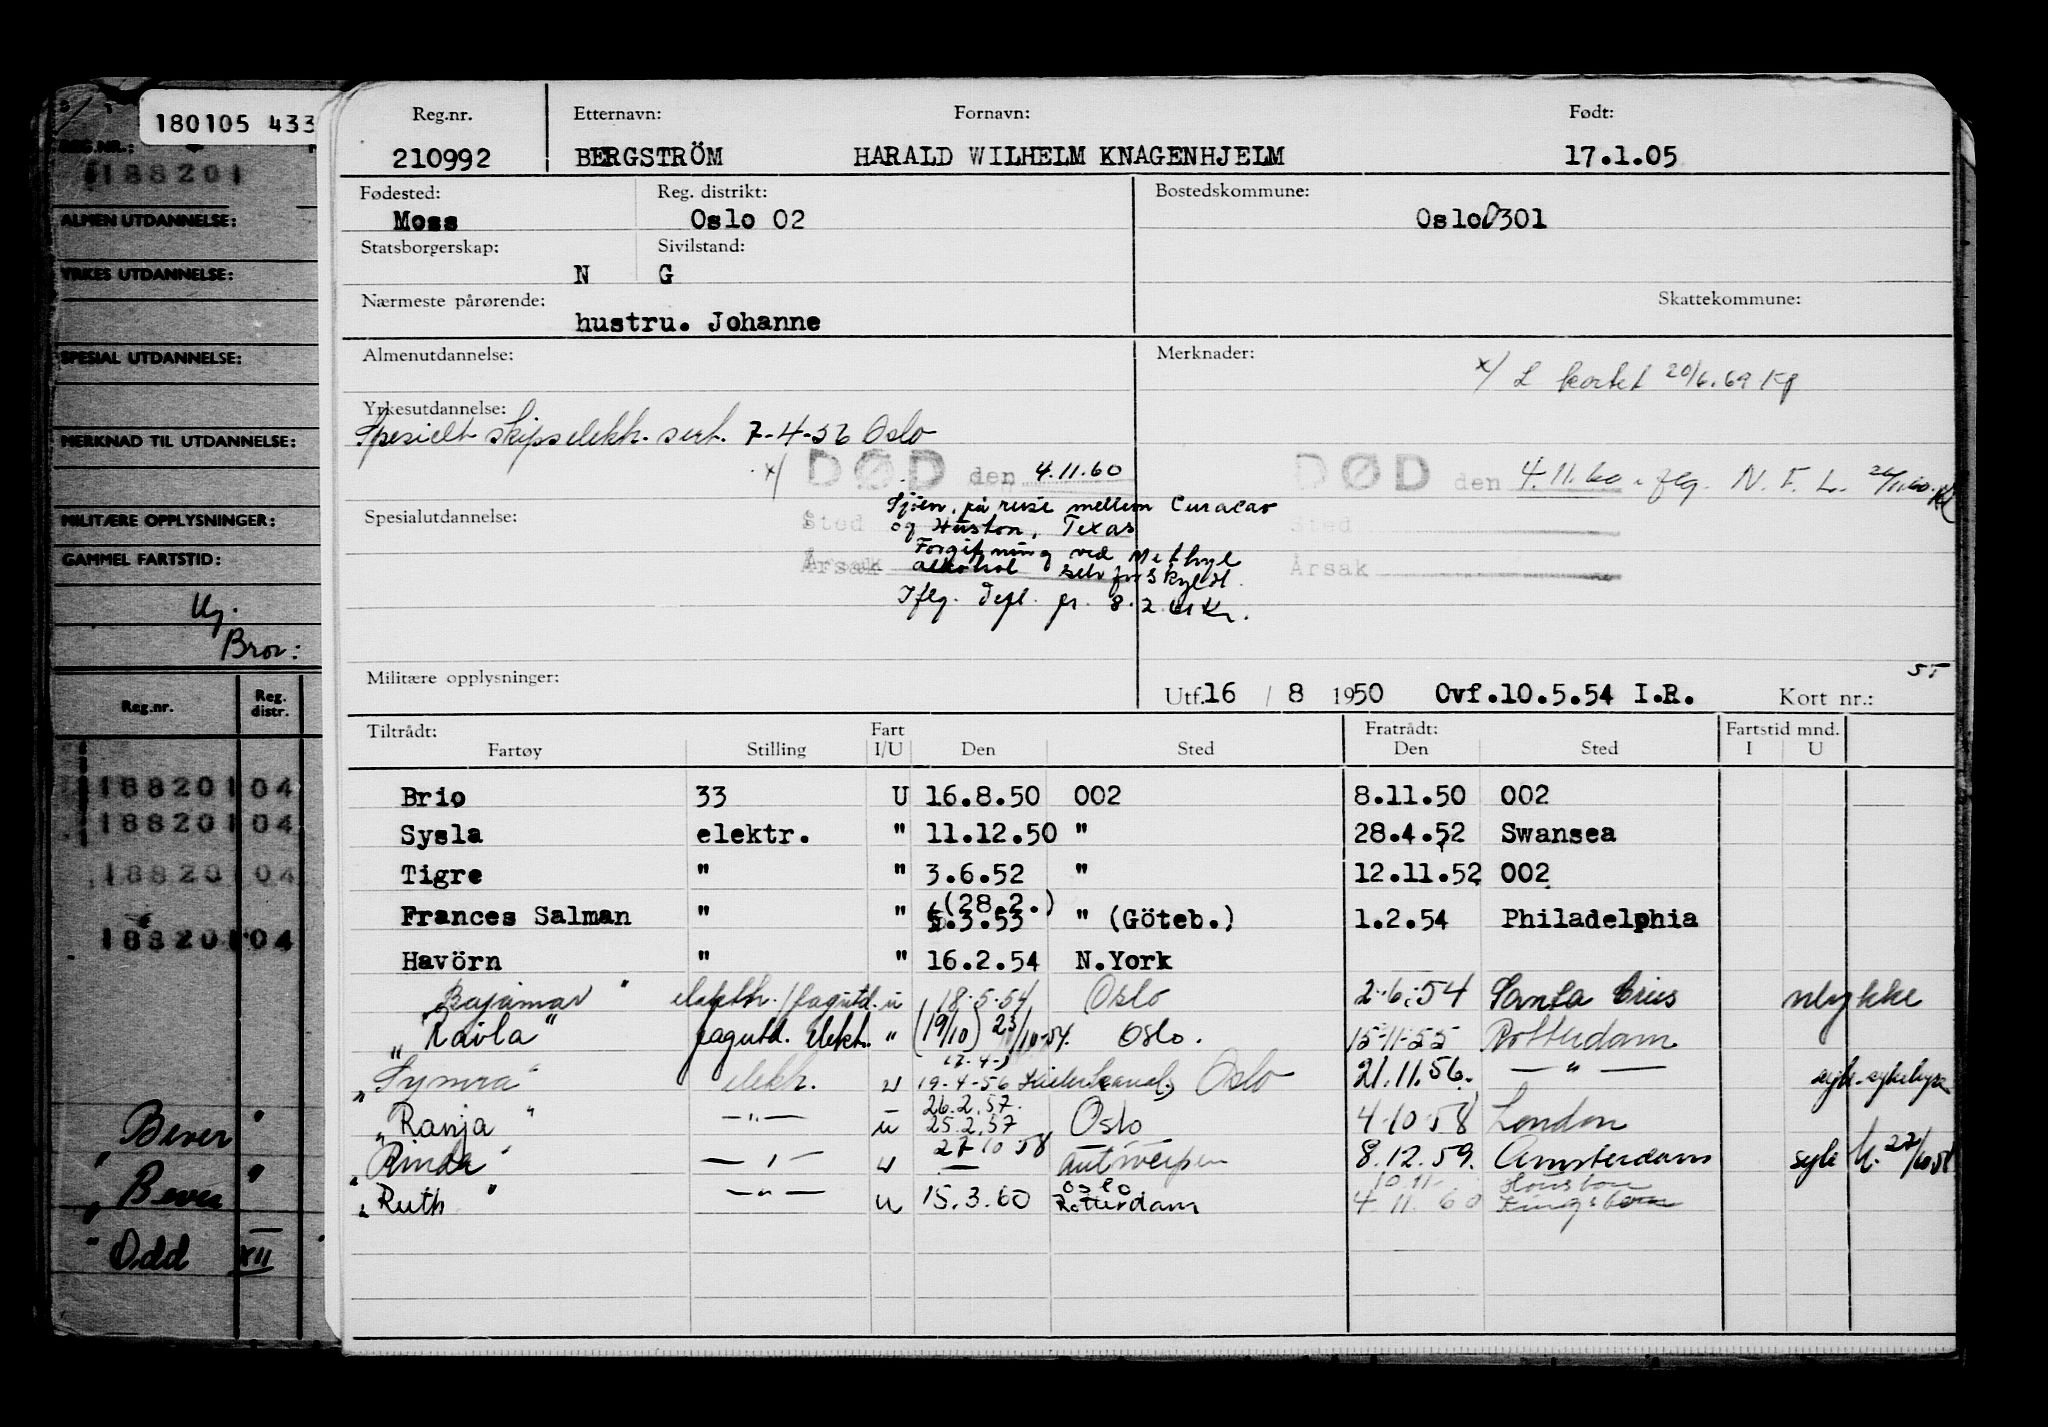 180105 433
REG.NR.:
188201
ALMEN UTDANNELSE:
YRKES UTDANNELSE:
SPESIAL UTDANNELSE:
MERKNAD TIL UTDANNELSE:
MILITÆRE OPPLYSNINGER:
GAMMEL FARTSTID:
Bror:
Reg.nr. Reg. distr.
188201 04
188201 04
18820 04
188201 04
Bever "
" Bever "
" Odd XII
Reg.nr. Etternavn: Fornavn: Født:
210992 BERGSTRÖM HARALD WILHELM KNAGENHJELM 17.1.05
Fødested: Reg. distrikt: Bostedskommune:
Moss Oslo 02 Oslo 0301
Statsborgerskap: Sivilstand:
N G
Nærmeste pårørende: Skattekommune:
hustru. Johanne
Almenutdannelse: Merknader:
x/ L kortet 20/6.69 Kg
Yrkesutdannelse:
Spesielt skipselektr. sert. 7-4-56 Oslo
x/ DØD den 4.11.60 DØD den 4.11.60 . flg. N. F. L.
Spesialutdannelse:
Sted Sjøen, på reise mellem Curacao Sted
og Huston, Texas
Årsak Forgiftning ved Methyl Årsak
alkohol selvforskyldt.
Iflg. defl. fr. 8.2.61 Kr.
Militære opplysninger: Utf. 16 / 8 1950 Ovf.10.5.54 I.R. Kort nr.: 5T
Tiltrådt: Fart Fratrådt: Fartstid mnd.
Fartøy Stilling I/U Den Sted Den Sted I U
Brio 33 U 16.8.50 002 8.11.50 002
Sysla elektr. " 11.12.50 " 28.4.52 Swansea
Tigre " " 3.6.52 " 12.11.52 002
(28.2.)
Frances Salman " " 5.3.53 " (Göteb.) 1.2.54 Philadelphia
Havörn " " 16.2.54 N.York
"Bajamar" elektr./fagutd. u 18.5.54 Oslo 2.6.54 Santa Crus ulykke
"Ravla" fagutd. elektr. " (19/10) 23/10-54. Oslo. 15-11-55 Rotterdam
"Symra" elektr. u 19-4-56 Kielerkanal, Oslo 21.11.56. — " —
26.2.57.
"Ranja" — " — u 25.2.57 Oslo 4-10-58 London
27 10 58
"Rinda" — " — u — Antwerpen 8.12.59. Amsterdam syk
Oslo 10.11- Houston
"Ruth" — " — u 15.3.60 Rotterdam 4.11.60